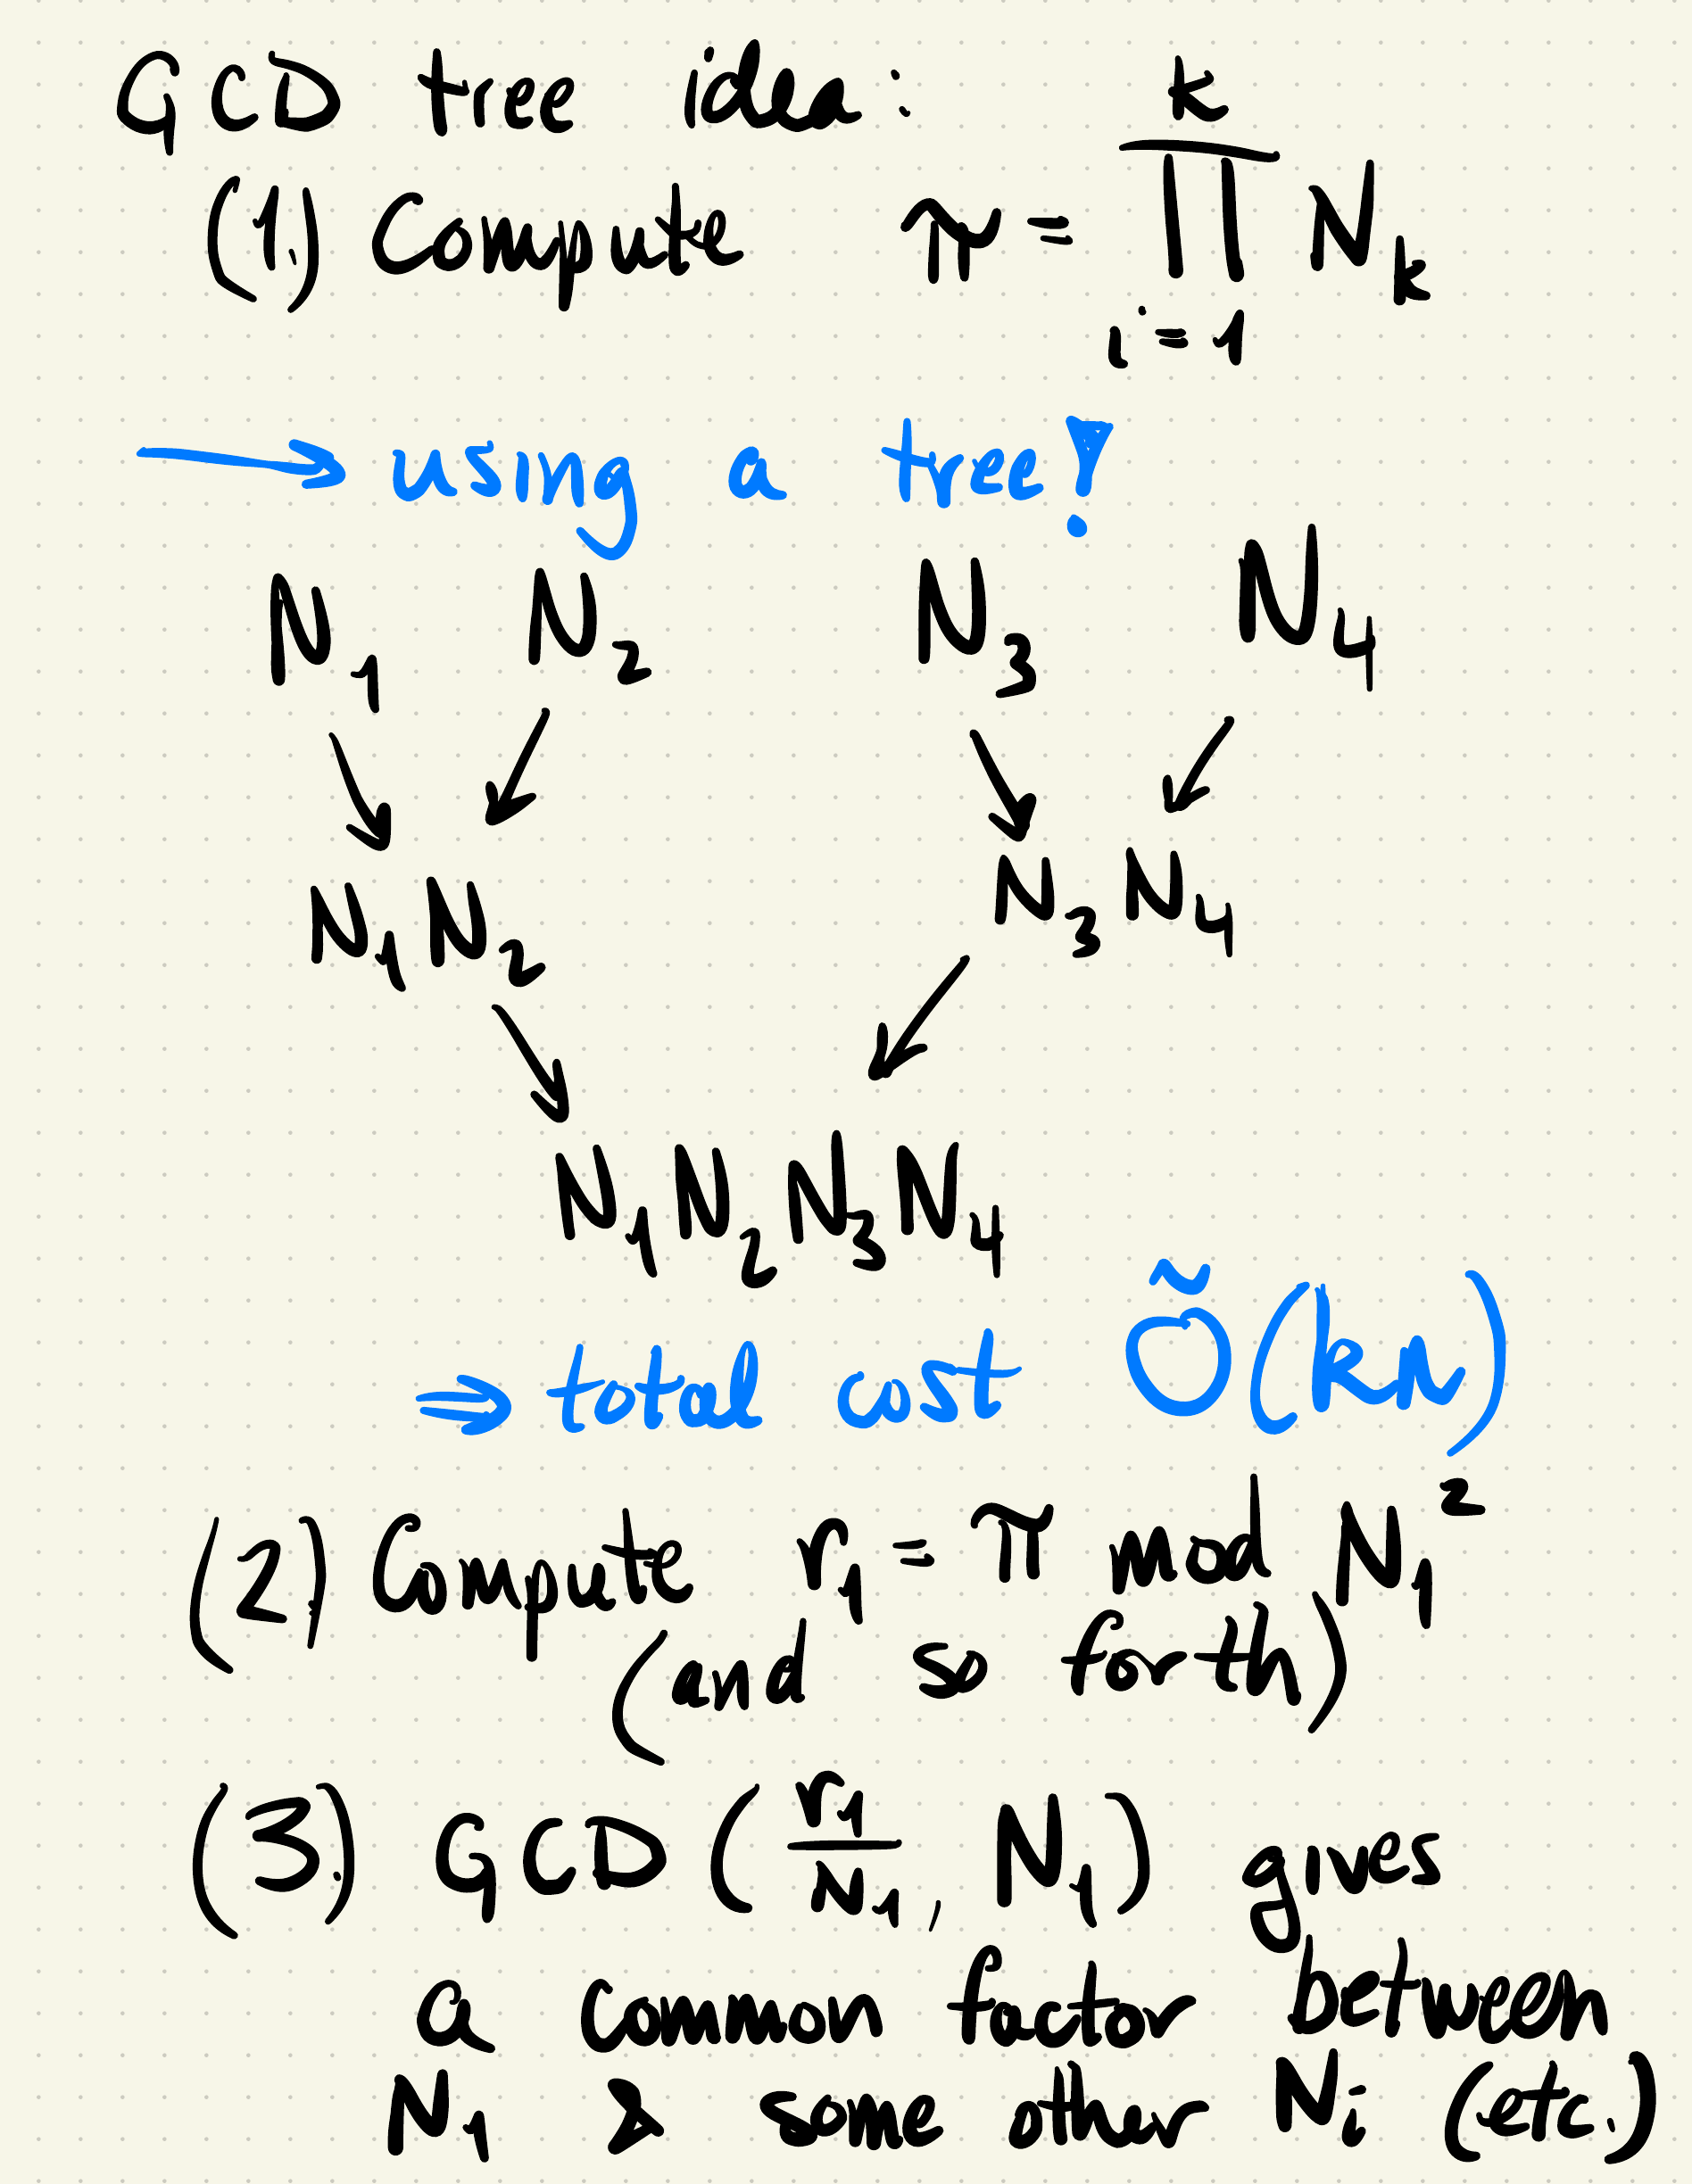 GCD tree idea:
(1.) Compute π = ∏_{i=1}^{k} N_k
→ using a tree!
N₁ N₂ N₃ N₄
N₁N₂ N₃N₄
N₁N₂N₃N₄
⇒ total cost Õ(kn)
(2.) Compute r₁ = π mod N₁²
(and so forth)
(3.) GCD (r₁/N₁, N₁) gives
a common factor between
N₁ & some other Nᵢ (etc.)